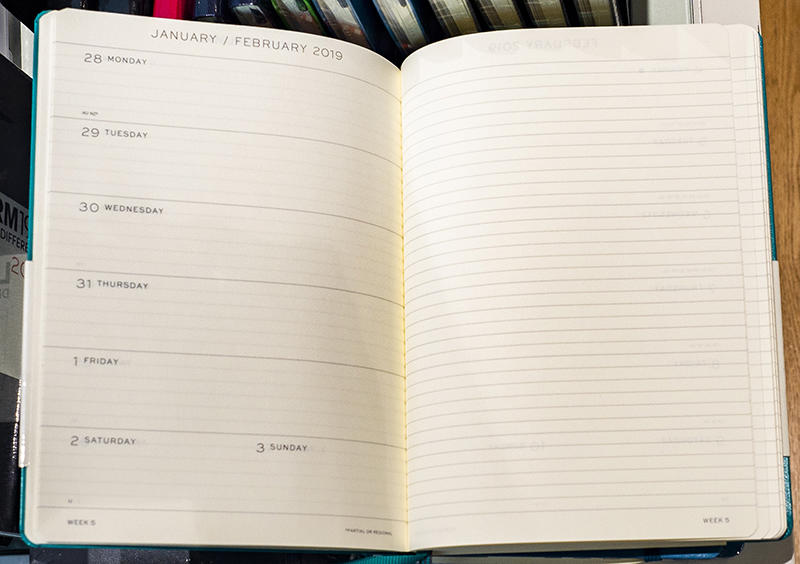 JANUARY / FEBRUARY 2019
28 MONDAY
AU NZ*
29 TUESDAY
30 WEDNESDAY
31 THURSDAY
1 FRIDAY
2 SATURDAY
3 SUNDAY
WEEK 5
*PARTIAL OR REGIONAL
WEEK 5